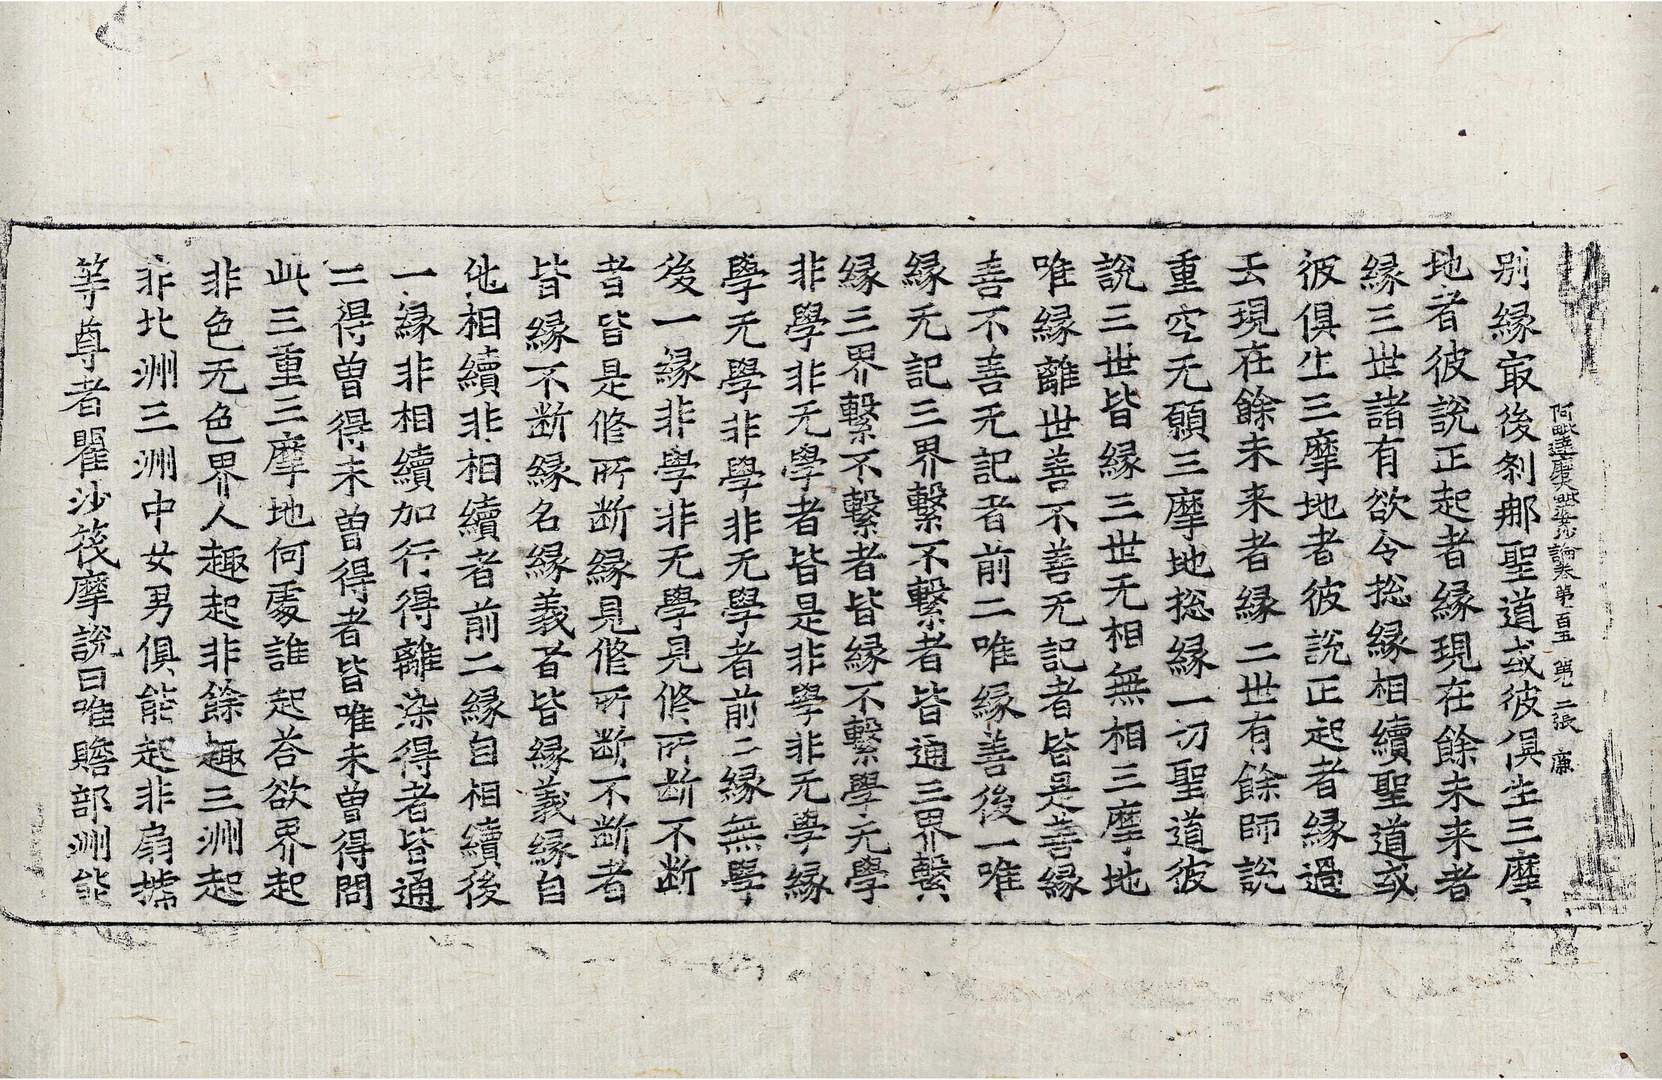 阿毗達磨大毗婆沙論卷第一百五 第二張 廉
別緣㝡後刹那聖道或彼俱生三摩
地者彼說正起者緣現在餘未来者
緣三世諸有欲令捴緣相續聖道或
彼俱生三摩地者彼說正起者緣過
去現在餘未来者緣二世有餘師說
重空无願三摩地捴緣一切聖道彼
說三世皆緣三世无相無相三摩地
唯緣離世善不善无記者皆是善緣
善不善无記者前二唯緣善後一唯
緣无記三界繫不繫者皆通三界繫
緣三界繫不繫者皆緣不繫學无學
非學非无學者皆是非學非无學緣
學无學非學非无學者前二緣無學
後一緣非學非无學見修所断不断
者皆是修所断緣見修所断不断者
皆緣不断緣名緣義者皆緣義緣自
他相續非相續者前二緣自相續後
一緣非相續加行得離染得者皆通
二得曽得未曽得者皆唯未曽得問
此三重三摩地何處誰起荅欲界起
非色无色界人趣起非餘趣三洲起
非北洲三洲中女男俱能起非扇搋
等尊者瞿沙筏摩說曰唯贍部洲能